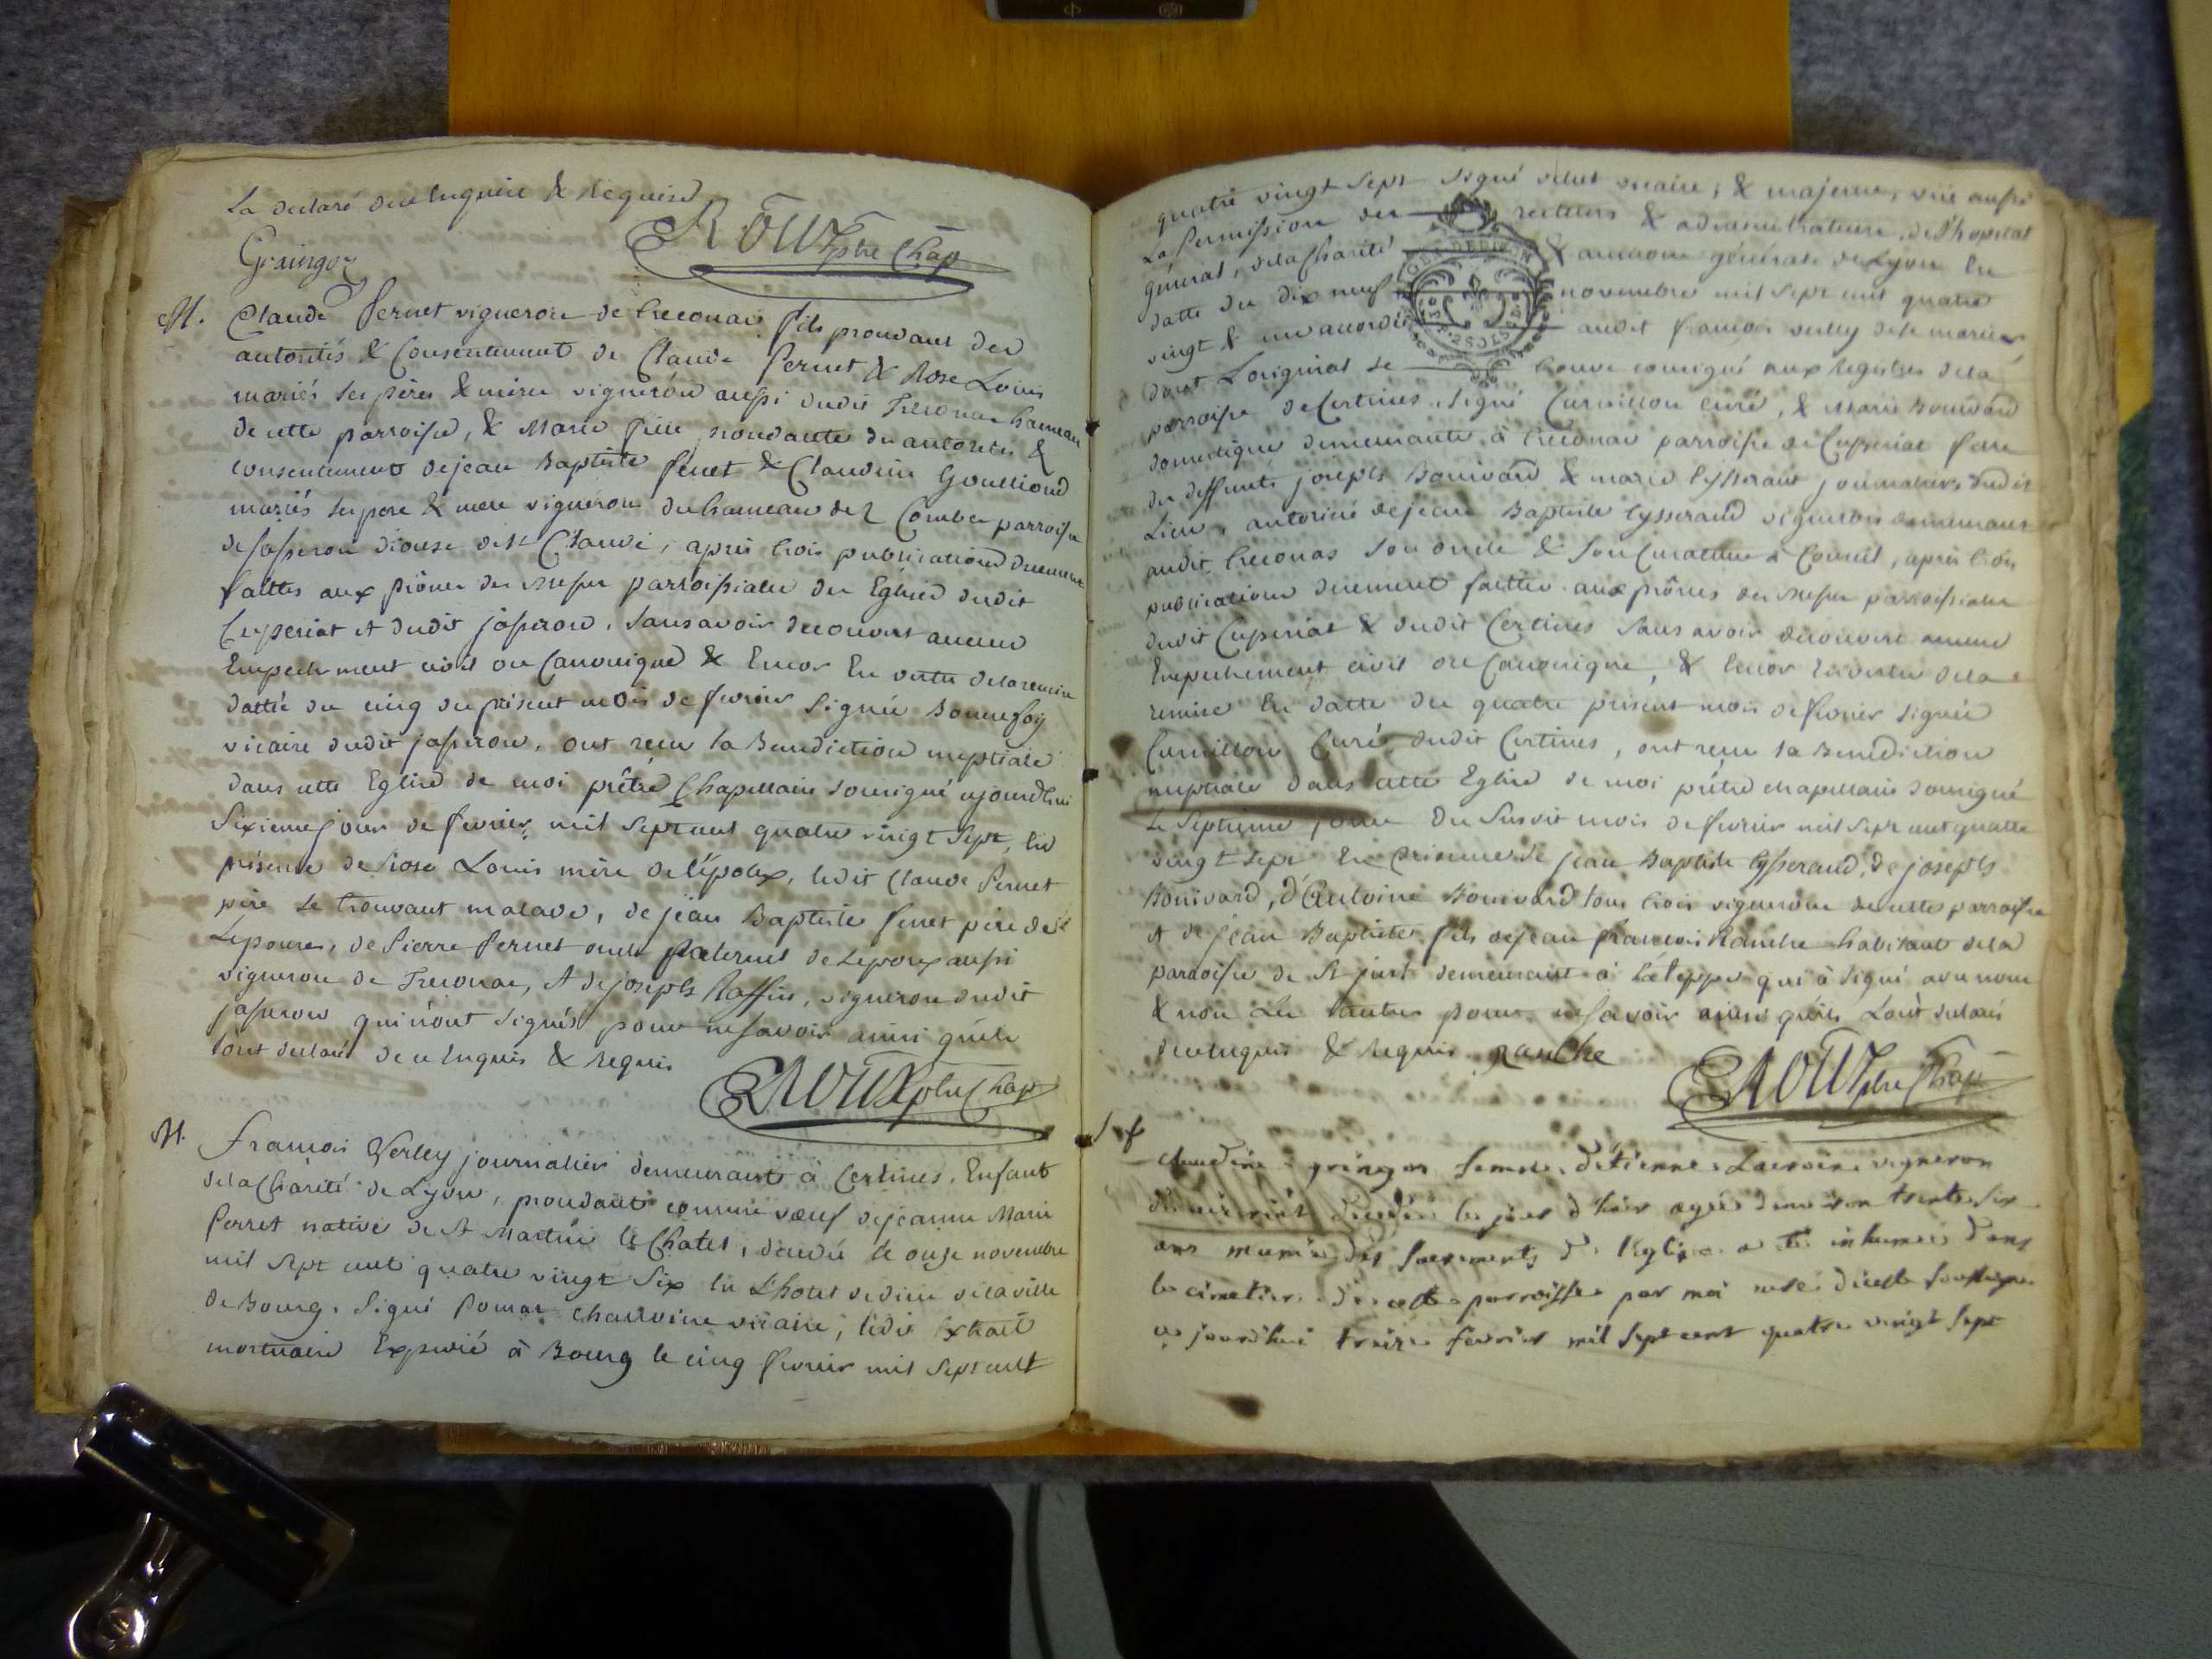 la declaré de ce enquise & requise
Graingor Roux ptre Chap
M. Claude Pernet vigneron de Treconas fils procedant des
autorités & Consentement de Claude Pernet & Rose Louis
mariés ses péres & mére vignerons aussi dudit Treconas hameau
de cette parroisse, & Marie fenet procedante des autorités &
consentement de jean Baptiste fenet & Claudine Goullioud
mariés ses pere & mere vignerons du hameau des Combes parroisse
de jasseron diocese de St Claude, après trois publications duement
faittes aux prônes des messes parroissiales des Eglises dudit
Ceyseriat et dudit jasseron, sans avoir decouvert aucun
Empechement civil ou Canonique & Encor En vertu de la remise
dattée du cinq du présent mois de fevrier Signée Bonnefoy
vicaire dudit jasseron, ont reçu la Benediction nuptiale
dans cette Eglise de moi prêtre Chapellain soussigné ajourdhui
Sixieme jour de fevrier mil Sept cent quatre vingt Sept, En
présence de Rose Louis mère de l'époux, ledit Claude Pernet
père se trouvant malade, de jean Baptiste fenet père de
Lepouse, de Pierre Pernet oncle paternel de Lepoux aussi
vigneron de Treconas, et de joseph Raffin, vigneron dudit
jasseron qui n'ont Signés pour ne savoir ainsi qu'ils
l'ont declaré de ce Enquis & Requis
Roux ptre Chap
M. François Verley journalier demeurant à Certines, Enfant
de la Charité de Lyon, procedant comme vœuf de jeanne Marie
Perret native de St Martin le Chatel, decedée le onze novembre
mil Sept cent quatre vingt Six En L'hotel de dieu de la ville
de Bourg, Signé Pomar chanoine vicaire, ledit Extrait
mortuaire Expedié à Bourg le cinq fevrier mil Sept cent
quatre vingt Sept Signé vicaire, & majeure, vue aussi
La Permission des recteurs & administrateurs de L'hopital
général, de la Charité & aumone générale de Lyon En
datte du dix neuf novembre mil Sept cent quatre
vingt & un accordée audit François Verley de se marier
dont Loriginal se trouve consigné aux Registres de la
parroisse de Certines, Signé Curnillon curé, & Marie Bouvard
domestique demeurante à Treconas parroisse de Ceyseriat fille
des deffunts joseph Bouvard & marie Teysserand journaliers dudit
Lieu, autorisée de jean Baptiste Tysserand vigneron demeurant
audit Treconas Son oncle & Son Curateur à Conseil, après trois
publications duement faittes aux prônes des messes parroissiales
dudit Ceyseriat & dudit Certines Sans avoir decouvert aucun
Empechement civil ou Canonique, & Encor En vertu de la
remise En datte du quatre présent mois de fevrier Signée
Curnillon Curé dudit Certines, ont reçu la Benediction
nuptiale dans cette Eglise de moi prêtre chapellain soussigné
Le Septieme jour Du Susdit mois de fevrier mil Sept cent quatre
vingt Sept En Présence de jean Baptiste Tysserand, de joseph
Bouvard, d'Antoine Bouvard tous trois vignerons de cette parroisse
et de jean Baptiste fils de jean francois Ranche habitant de la
parroisse de St just demeurant à qui à Signé avec nous
& non Les autres pour ne savoir ainsi qu'ils Lont declaré
de ce Enquis & Requis Ranche Roux ptre Chap
Sf
claudine gringor femme d'Etienne Lacroix vigneron
decedée le jour d'hier agée d'environ trente six
ans munie des sacrements de l'eglise a eté inhumée dans
le cimetiere de cette parroisse par moi curé d'icelle soussigné
ce jourd'hui treize fevrier mil sept cent quatre vingt sept